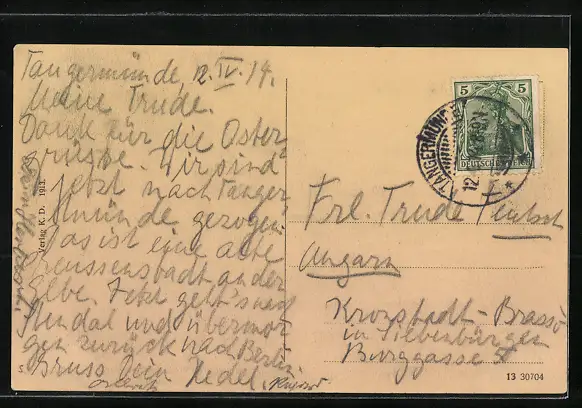 Tangermünde, 12. IV. 14.
Meine Trude.
Dank für die Oster
grüsse. Wir sind
jetzt nach Tanger
münde gezogen.
Das ist eine alte
an der
Elbe. Jetzt geht's nach
Stendal und übermor
gen zurück nach Berlin
Gruss Dein
Verlag K. D. 1913
5
5
DEUTSCHES
TANGERMÜNDE
12
Frl. Trude
Ungarn
Kronstadt-Brassó
in Siebenbürgen
Burggasse
13 30704
S